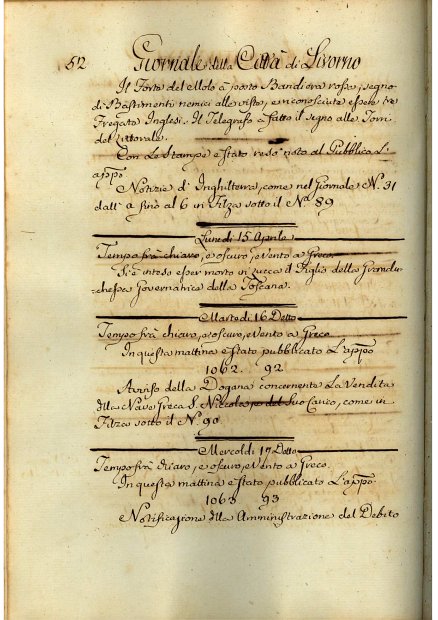 52 Giornale della Città di Livorno
Il Forte del Molo à posto Bandiera rossa, segno
di Bastimenti nemici alla vista, e riconosciute essere tre
Fregata Inglesi. Il Telegrafo à fatto il segno alle Torri
del littorale.
Con Le Stampe è stato reso noto al Pubblico L'
appo
Notizie d' Inghilterra, come nel Giornale N. 31
dall' a fino al 6 in Filza sotto il N.º 89
Lunedì 15 Aprile
Tempo frà chiaro, e oscuro, e vento a Greco
Si è inteso esser morto in Lucca il Figlio della Grandu-
chessa Governatrice della Toscana.
Martedì 16 Detto
Tempo frà chiaro, e oscuro, e vento a Greco
In questa mattina è stato pubblicato L'appo
1062. 92
Avviso della Dogana concernente La Vendita
della Nave Greca S. Niccola, e del suo Carico, come in
Filza sotto il N.º 90
Mercoldì 17 Detto
Tempo frà chiaro, e oscuro, e vento a Greco.
In questa mattina è stato pubblicato L'appo.
1063 93
Notificazione della Amministrazione del Debito